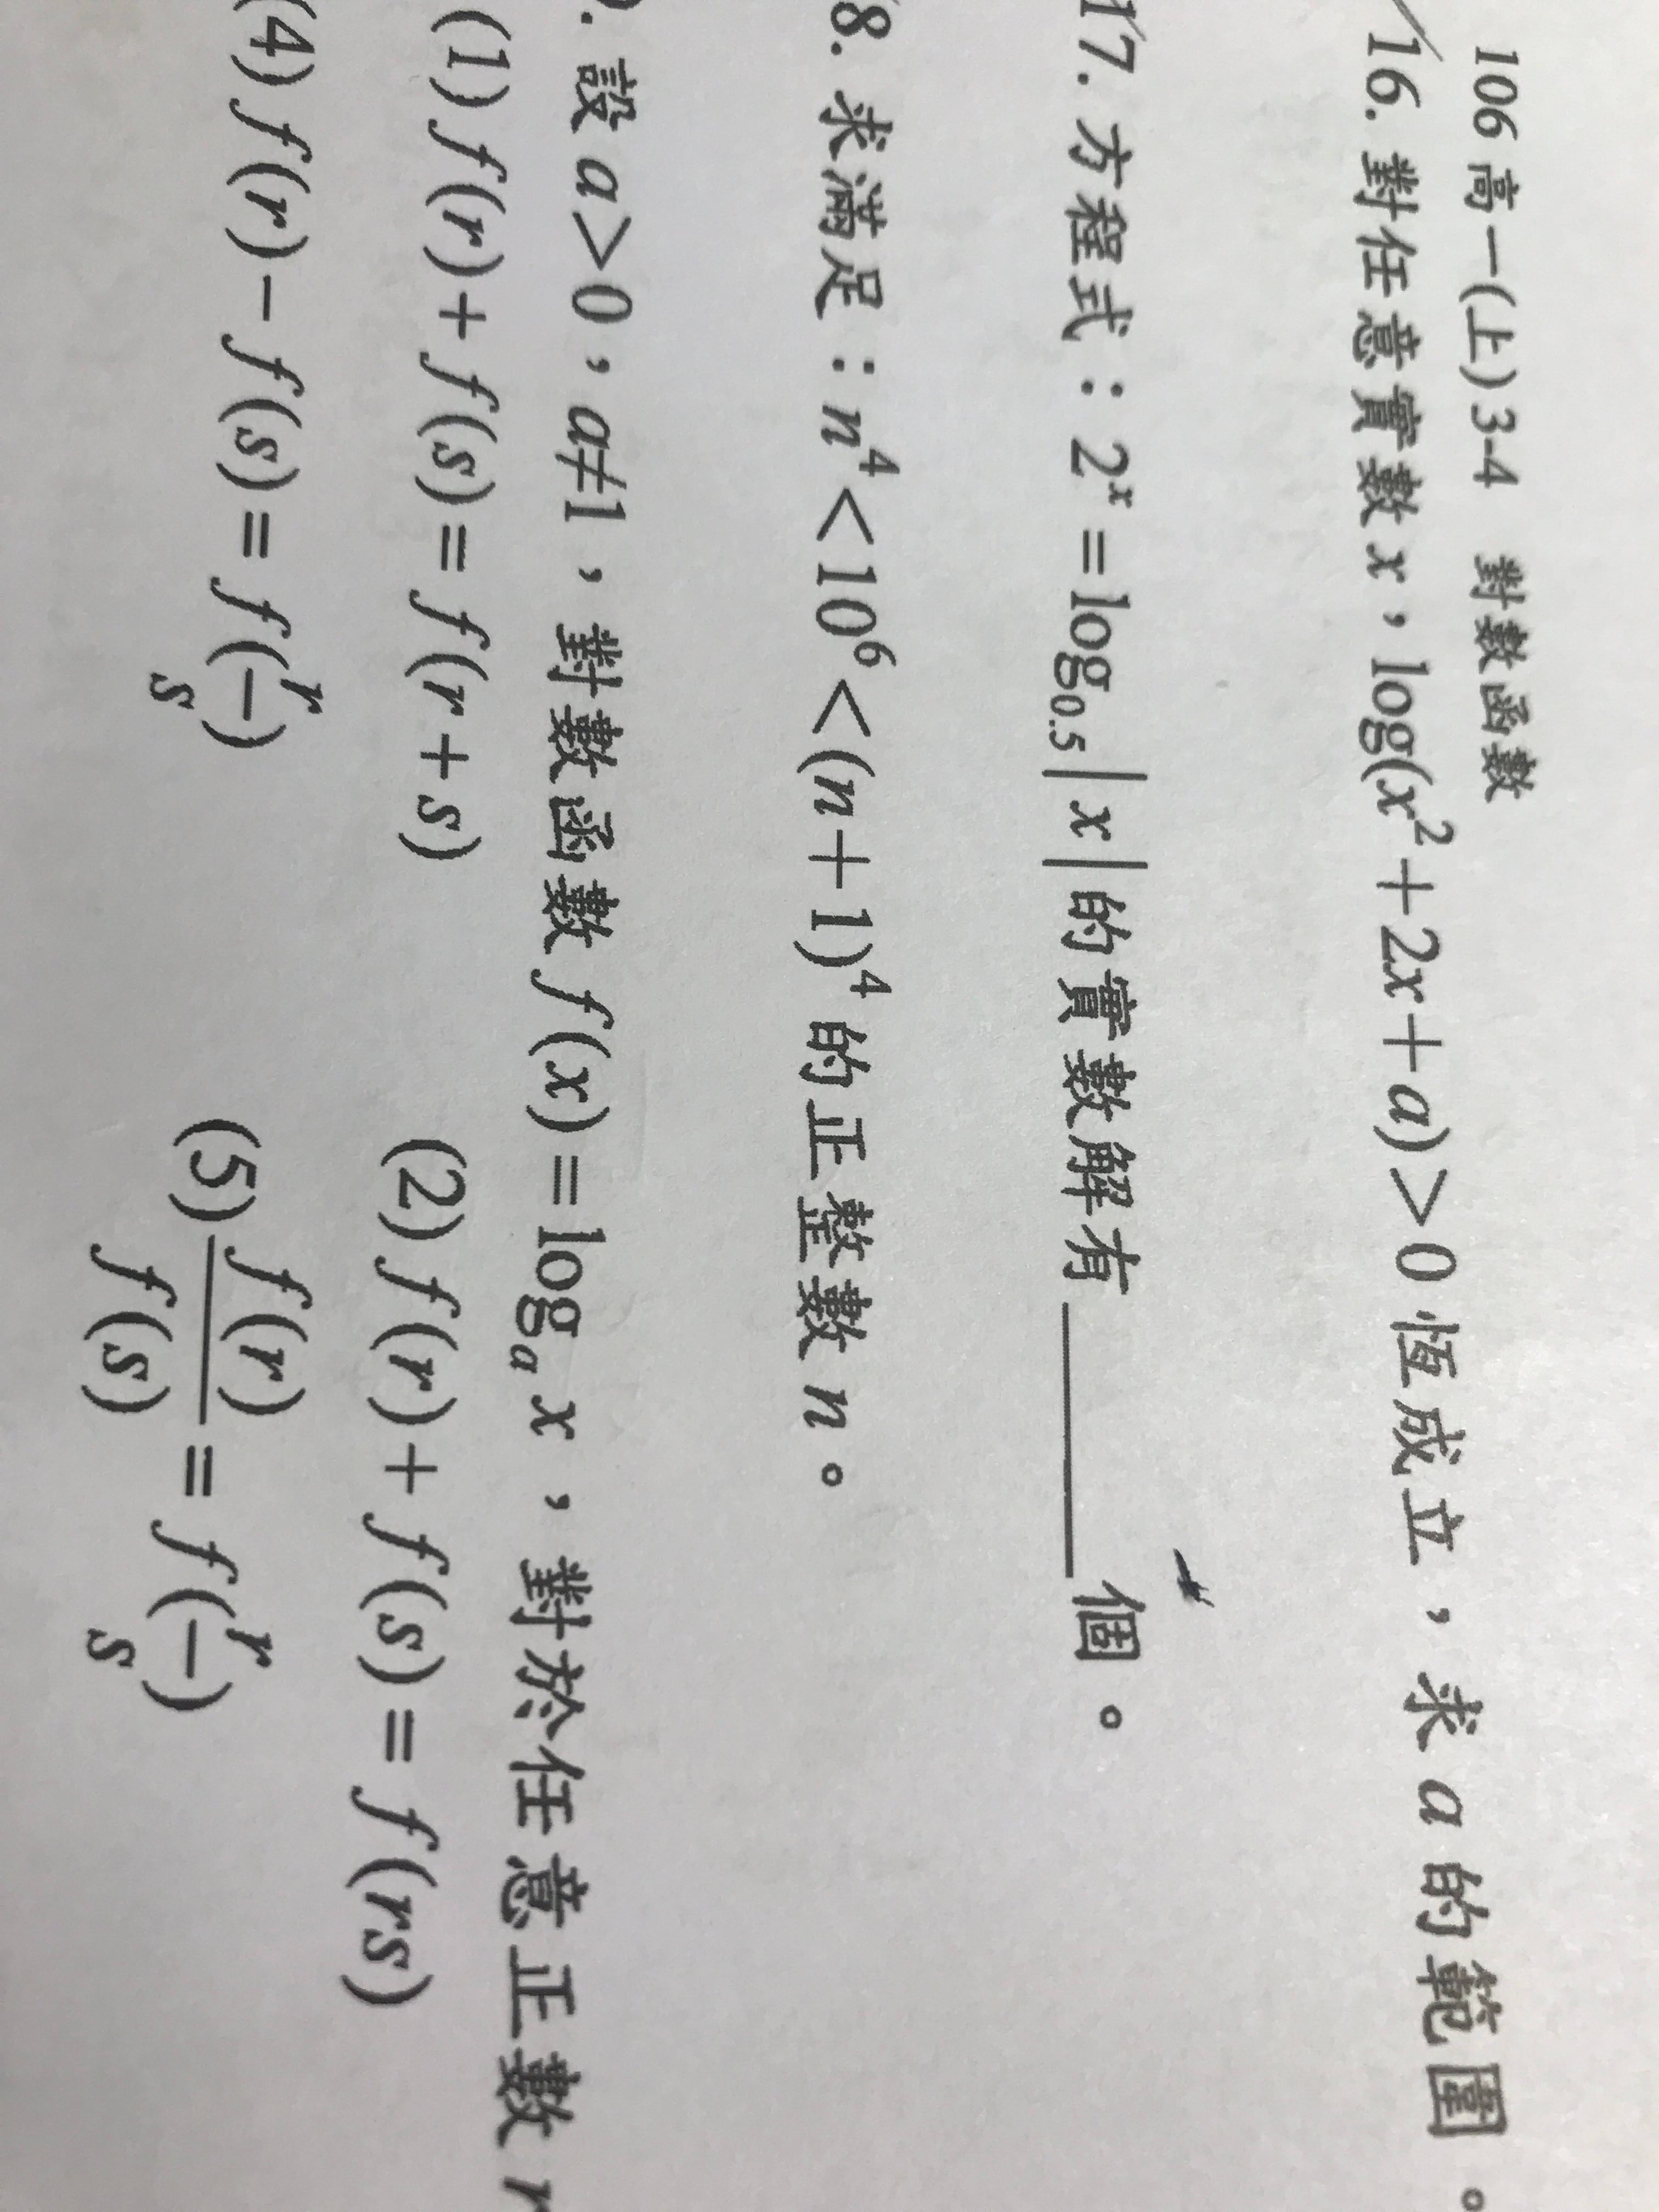 106 高一(上)3-4 對數函數
16. 對任意實數 x，log(x²+2x+a)>0 恆成立，求 a 的範圍。
17. 方程式：2ˣ=log₀.₅|x|的實數解有______個。
8. 求滿足：n⁴<10⁶<(n+1)⁴ 的正整數 n。
. 設 a>0，a≠1，對數函數 f(x)=logₐx，對於任意正數 r
(1) f(r)+f(s)=f(r+s) (2) f(r)+f(s)=f(rs)
(4) f(r)-f(s)=f(r/s) (5) f(r)/f(s)=f(r/s)